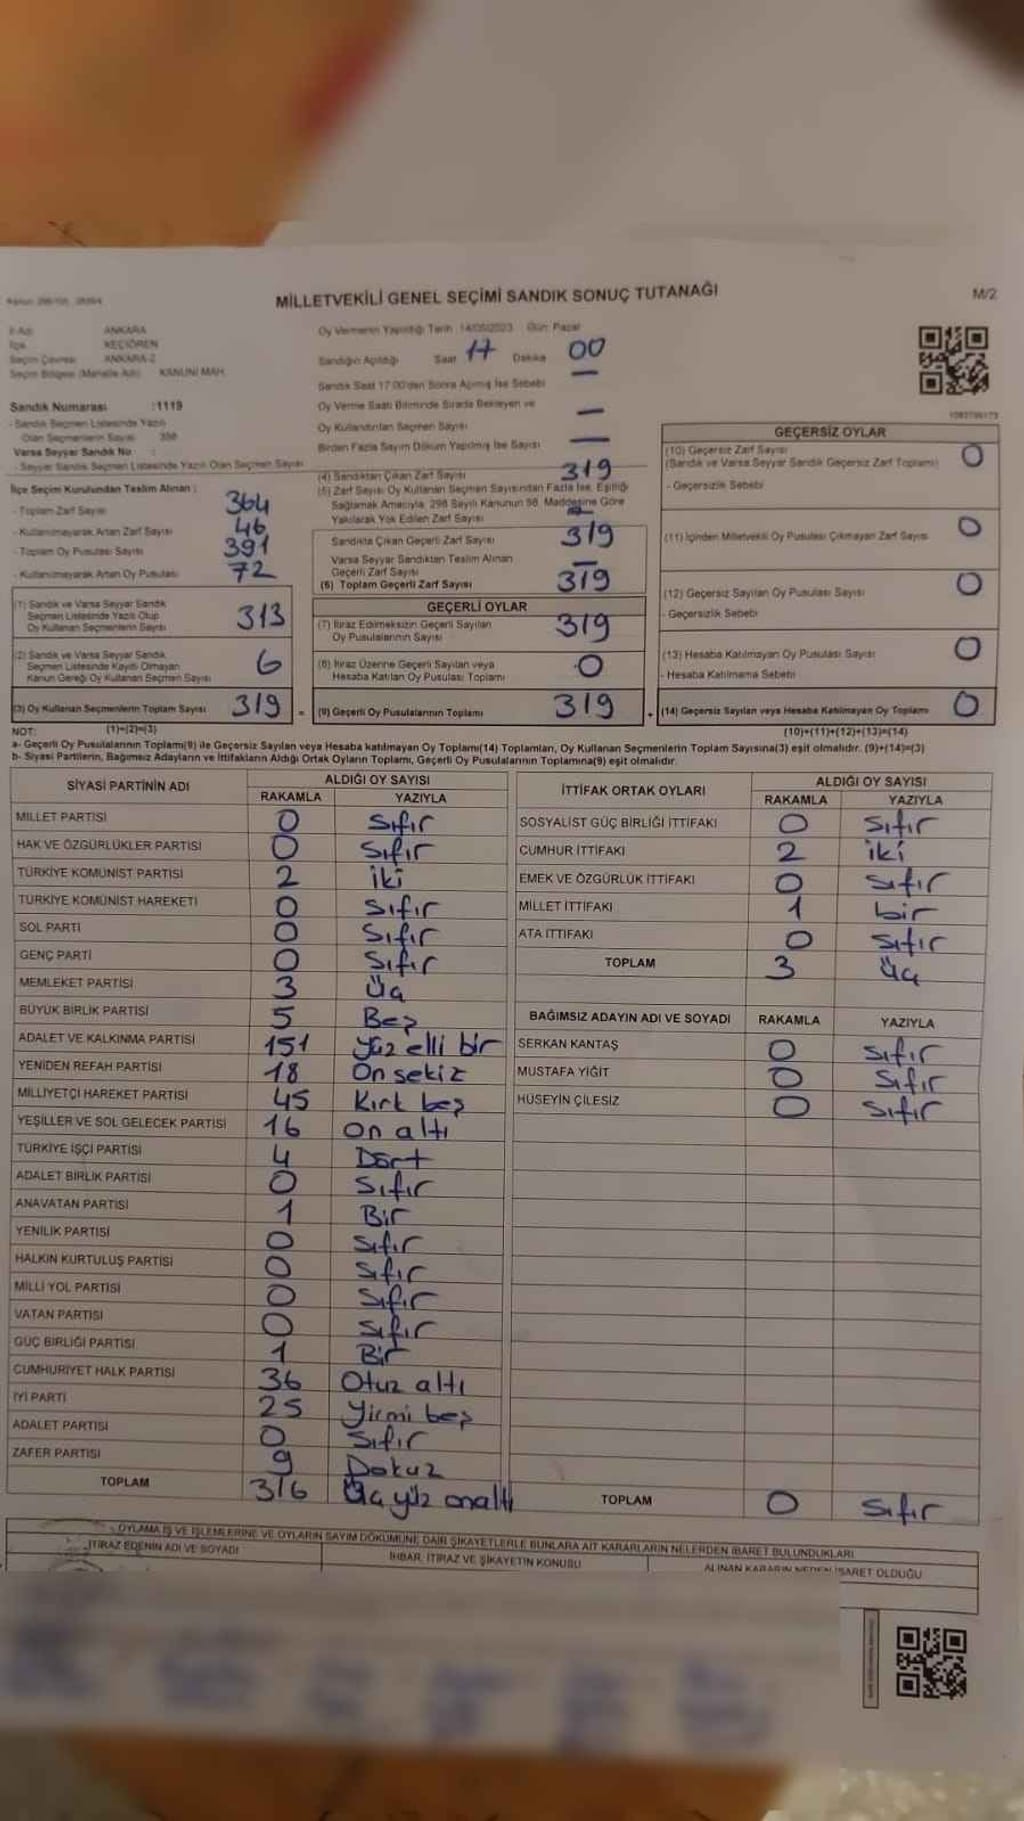 MİLLETVEKİLİ GENEL SEÇİMİ SANDIK SONUÇ TUTANAĞI
M/2
İl Adı ANKARA
İlçe KEÇİÖREN
Seçim Çevresi ANKARA-2
Seçim Bölgesi (Mahalle Adı) KANUNİ MAH.
Sandık Numarası :1119
- Sandık Seçmen Listesinde Yazılı
Olan Seçmenlerin Sayısı
Varsa Seyyar Sandık No :
- Seyyar Sandık Seçmen Listesinde Yazılı Olan Seçmen Sayısı
Oy Vermenin Yapıldığı Tarih 14/05/2023 Gün: Pazar
Sandığın Açıldığı Saat 17 Dakika 00
Sandık Saat 17:00'den Sonra Açılmış İse Sebebi —
Oy Verme Saati Bitiminde Sırada Bekleyen ve
Oy Kullandırılan Seçmenlerin Sayısı —
Birden Fazla Sayım Döküm Yapılmış İse Sayısı —
İlçe Seçim Kurulundan Teslim Alınan :
- Toplam Zarf Sayısı 364
- Kullanılmayarak Artan Zarf Sayısı 46
- Toplam Oy Pusulası Sayısı 391
- Kullanılmayarak Artan Oy Pusulası 72
(1) Sandık ve Varsa Seyyar Sandık
Seçmen Listesinde Yazılı Olup
Oy Kullanan Seçmenlerin Sayısı 313
(2) Sandık ve Varsa Seyyar Sandık
Seçmen Listesinde Kayıtlı Olmayan
Kanun Gereği Oy Kullanan Seçmen Sayısı 6
(3) Oy Kullanan Seçmenlerin Toplam Sayısı 319
(1)+(2)=(3)
(4) Sandıktan Çıkan Zarf Sayısı 319
(5) Zarf Sayısı Oy Kullanan Seçmen Sayısından Fazla İse, Eşitliği
Sağlamak Amacıyla, 298 Sayılı Kanunun 98. Maddesine Göre
Yakılarak Yok Edilen Zarf Sayısı
Sandıkta Çıkan Geçerli Zarf Sayısı 319
Varsa Seyyar Sandıktan Teslim Alınan
Geçerli Zarf Sayısı —
(6) Toplam Geçerli Zarf Sayısı 319
GEÇERLİ OYLAR
(7) İtiraz Edilmeksizin Geçerli Sayılan
Oy Pusulalarının Sayısı 319
(8) İtiraz Üzerine Geçerli Sayılan veya
Hesaba Katılan Oy Pusulası Toplamı 0
(9) Geçerli Oy Pusulalarının Toplamı 319
GEÇERSİZ OYLAR
(10) Geçersiz Zarf Sayısı 0
(Sandık ve Varsa Seyyar Sandık Geçersiz Zarf Toplamı)
- Geçersizlik Sebebi
(11) İçinden Milletvekili Oy Pusulası Çıkmayan Zarf Sayısı 0
(12) Geçersiz Sayılan Oy Pusulası Sayısı 0
- Geçersizlik Sebebi
(13) Hesaba Katılmayan Oy Pusulası Sayısı 0
- Hesaba Katılmama Sebebi
(14) Geçersiz Sayılan veya Hesaba Katılmayan Oy Toplamı 0
(10)+(11)+(12)+(13)=(14)
NOT:
a- Geçerli Oy Pusulalarının Toplamı(9) ile Geçersiz Sayılan veya Hesaba katılmayan Oy Toplamı(14) Toplamları, Oy Kullanan Seçmenlerin Toplam Sayısına(3) eşit olmalıdır. (9)+(14)=(3)
b- Siyasi Partilerin, Bağımsız Adayların ve İttifakların Aldığı Ortak Oyların Toplamı, Geçerli Oy Pusulalarının Toplamına(9) eşit olmalıdır.
SİYASİ PARTİNİN ADI ALDIĞI OY SAYISI
RAKAMLA YAZIYLA
MİLLET PARTİSİ 0 Sıfır
HAK VE ÖZGÜRLÜKLER PARTİSİ 0 Sıfır
TÜRKİYE KOMÜNİST PARTİSİ 2 İki
TÜRKİYE KOMÜNİST HAREKETİ 0 Sıfır
SOL PARTİ 0 Sıfır
GENÇ PARTİ 0 Sıfır
MEMLEKET PARTİSİ 3 Üç
BÜYÜK BİRLİK PARTİSİ 5 Beş
ADALET VE KALKINMA PARTİSİ 151 Yüz elli bir
YENİDEN REFAH PARTİSİ 18 On sekiz
MİLLİYETÇİ HAREKET PARTİSİ 45 Kırk beş
YEŞİLLER VE SOL GELECEK PARTİSİ 16 On altı
TÜRKİYE İŞÇİ PARTİSİ 4 Dört
ADALET BİRLİK PARTİSİ 0 Sıfır
ANAVATAN PARTİSİ 1 Bir
YENİLİK PARTİSİ 0 Sıfır
HALKIN KURTULUŞ PARTİSİ 0 Sıfır
MİLLİ YOL PARTİSİ 0 Sıfır
VATAN PARTİSİ 0 Sıfır
GÜÇ BİRLİĞİ PARTİSİ 1 Bir
CUMHURİYET HALK PARTİSİ 36 Otuz altı
İYİ PARTİ 25 Yirmi beş
ADALET PARTİSİ 0 Sıfır
ZAFER PARTİSİ 9 Dokuz
TOPLAM 316 Üç yüz onaltı
İTTİFAK ORTAK OYLARI ALDIĞI OY SAYISI
RAKAMLA YAZIYLA
SOSYALİST GÜÇ BİRLİĞİ İTTİFAKI 0 Sıfır
CUMHUR İTTİFAKI 2 iki
EMEK VE ÖZGÜRLÜK İTTİFAKI 0 Sıfır
MİLLET İTTİFAKI 1 bir
ATA İTTİFAKI 0 Sıfır
TOPLAM 3 Üç
BAĞIMSIZ ADAYIN ADI VE SOYADI RAKAMLA YAZIYLA
SERKAN KANTAŞ 0 Sıfır
MUSTAFA YİĞİT 0 Sıfır
HÜSEYİN ÇİLESİZ 0 Sıfır
TOPLAM 0 Sıfır
OYLAMA İŞ VE İŞLEMLERİNE VE OYLARIN SAYIM DÖKÜMÜNE DAİR ŞİKAYETLERLE BUNLARA AİT KARARLARIN NELERDEN İBARET BULUNDUKLARI
İTİRAZ EDENİN ADI VE SOYADI
İHBAR, İTİRAZ VE ŞİKAYETİN KONUSU
ALINAN KARARIN NEDEN İBARET OLDUĞU